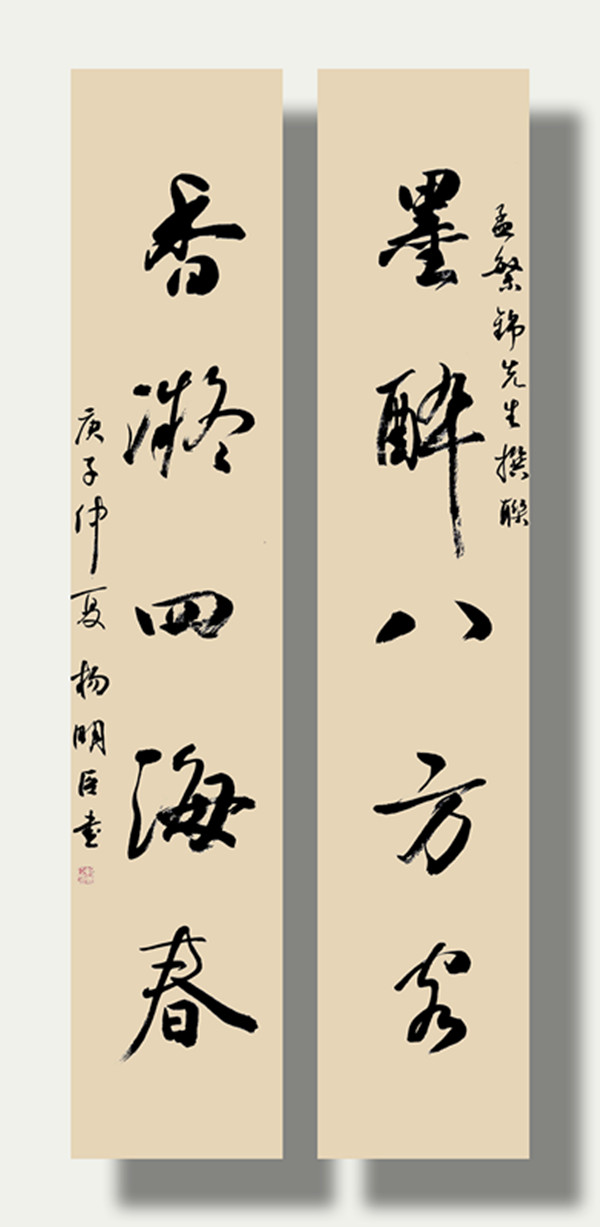 孟繁锦先生撰联
墨醉八方客
香凝四海春
庚子仲夏杨明臣书